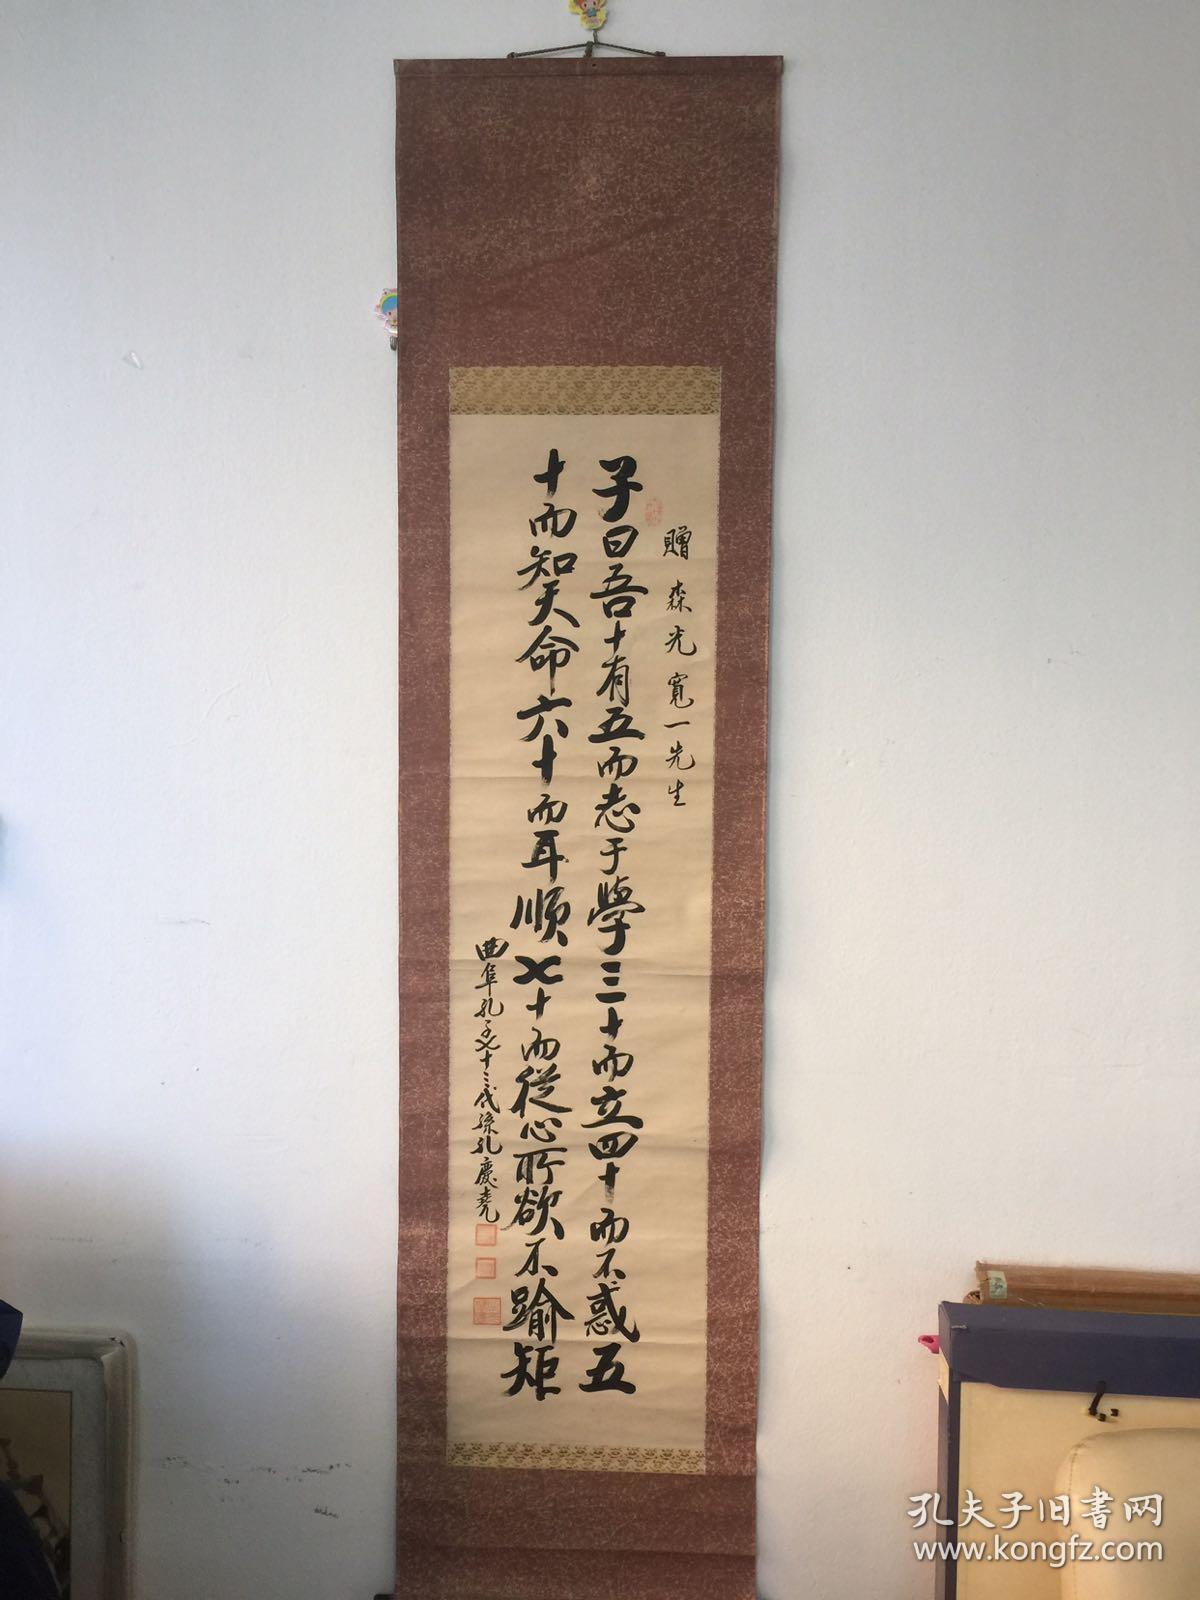 贈森光寬一先生
子曰吾十有五而志于學三十而立四十而不惑五
十而知天命六十而耳順七十而從心所欲不踰矩
曲阜孔子七十三代孫孔慶堯
孔夫子旧書网
www.kongfz.com